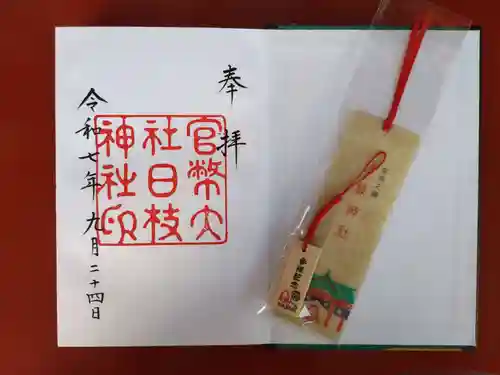 奉拝
官幣大
社日枝
神社印
令和七年九月二十四日